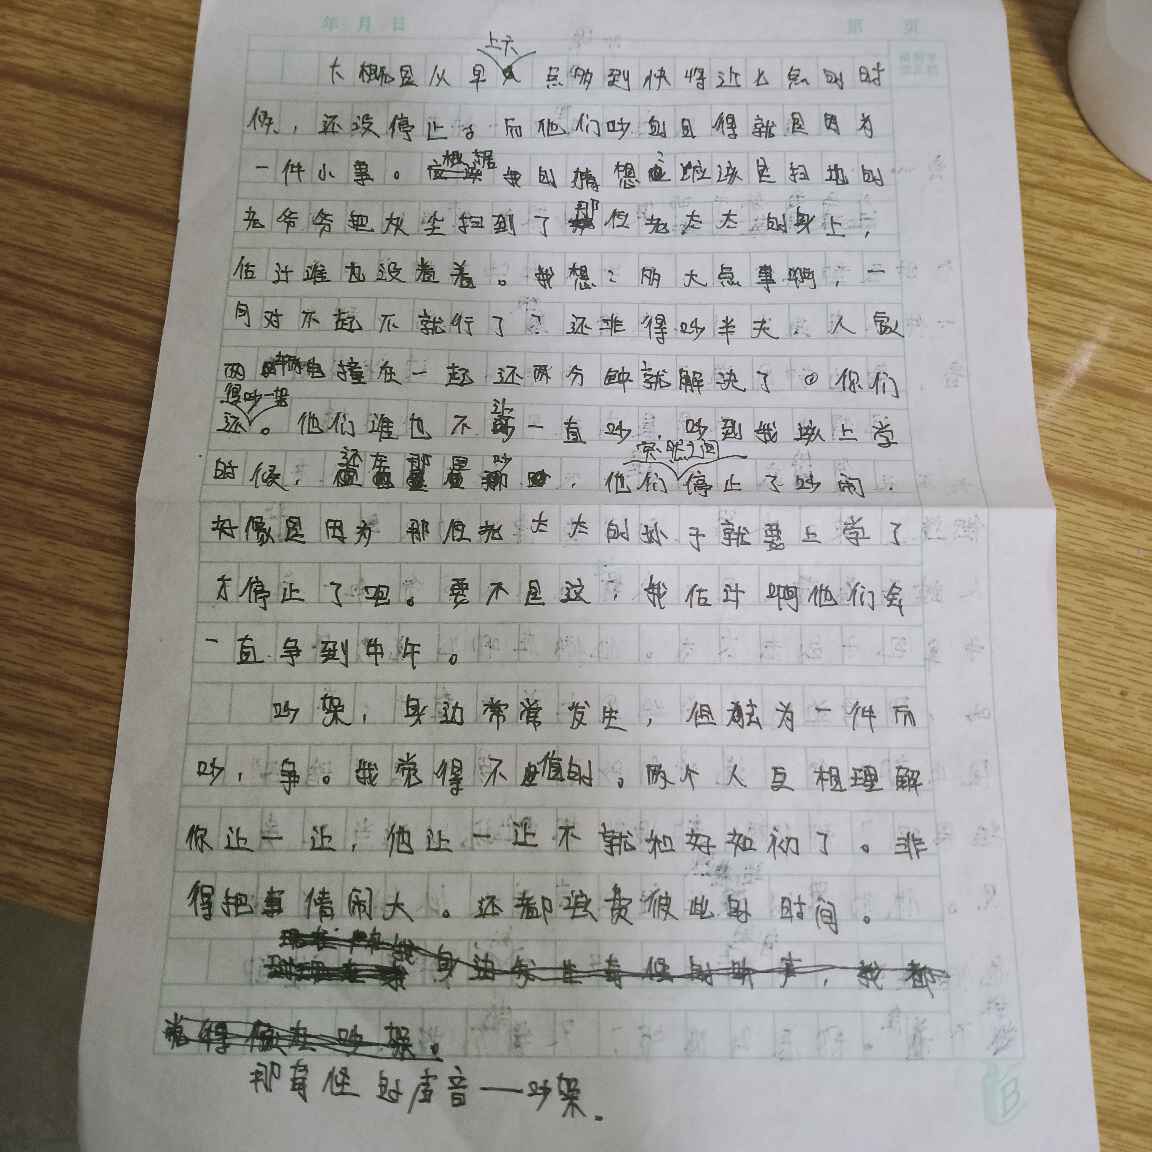 年 月 日 第 页
大概是从早上六点多到快将近七点的时
候，还没停止。而他们吵的且得就是因为
一件小事。根据我的猜想，应该是扫地的
老爷爷把灰尘扫到了那位老太太的身上，
估计谁也没道着。我想：多大点事啊，一
句对不起不就行了？还非得吵半天，人家
两车辆撞在一起还两分钟就解决了。你们
还得吵一架。他们谁也不让一直吵，吵到我该上学
的时候，还在那里吵，他们突然之间停止了吵闹，
好像是因为那位老太太的孙子就要上学了
才停止了吧。要不是这，我估计啊他们会
一直争到中午。
吵架，身边常常发生，但为一件而
吵，争。我觉得不值的。两个人互相理解
你让一让，他让一让不就和好如初了。非
得把事情闹大。还都浪费彼此的时间。
身边发生奇怪的声，我都
觉得像在吵架。
那奇怪的声音——吵架.